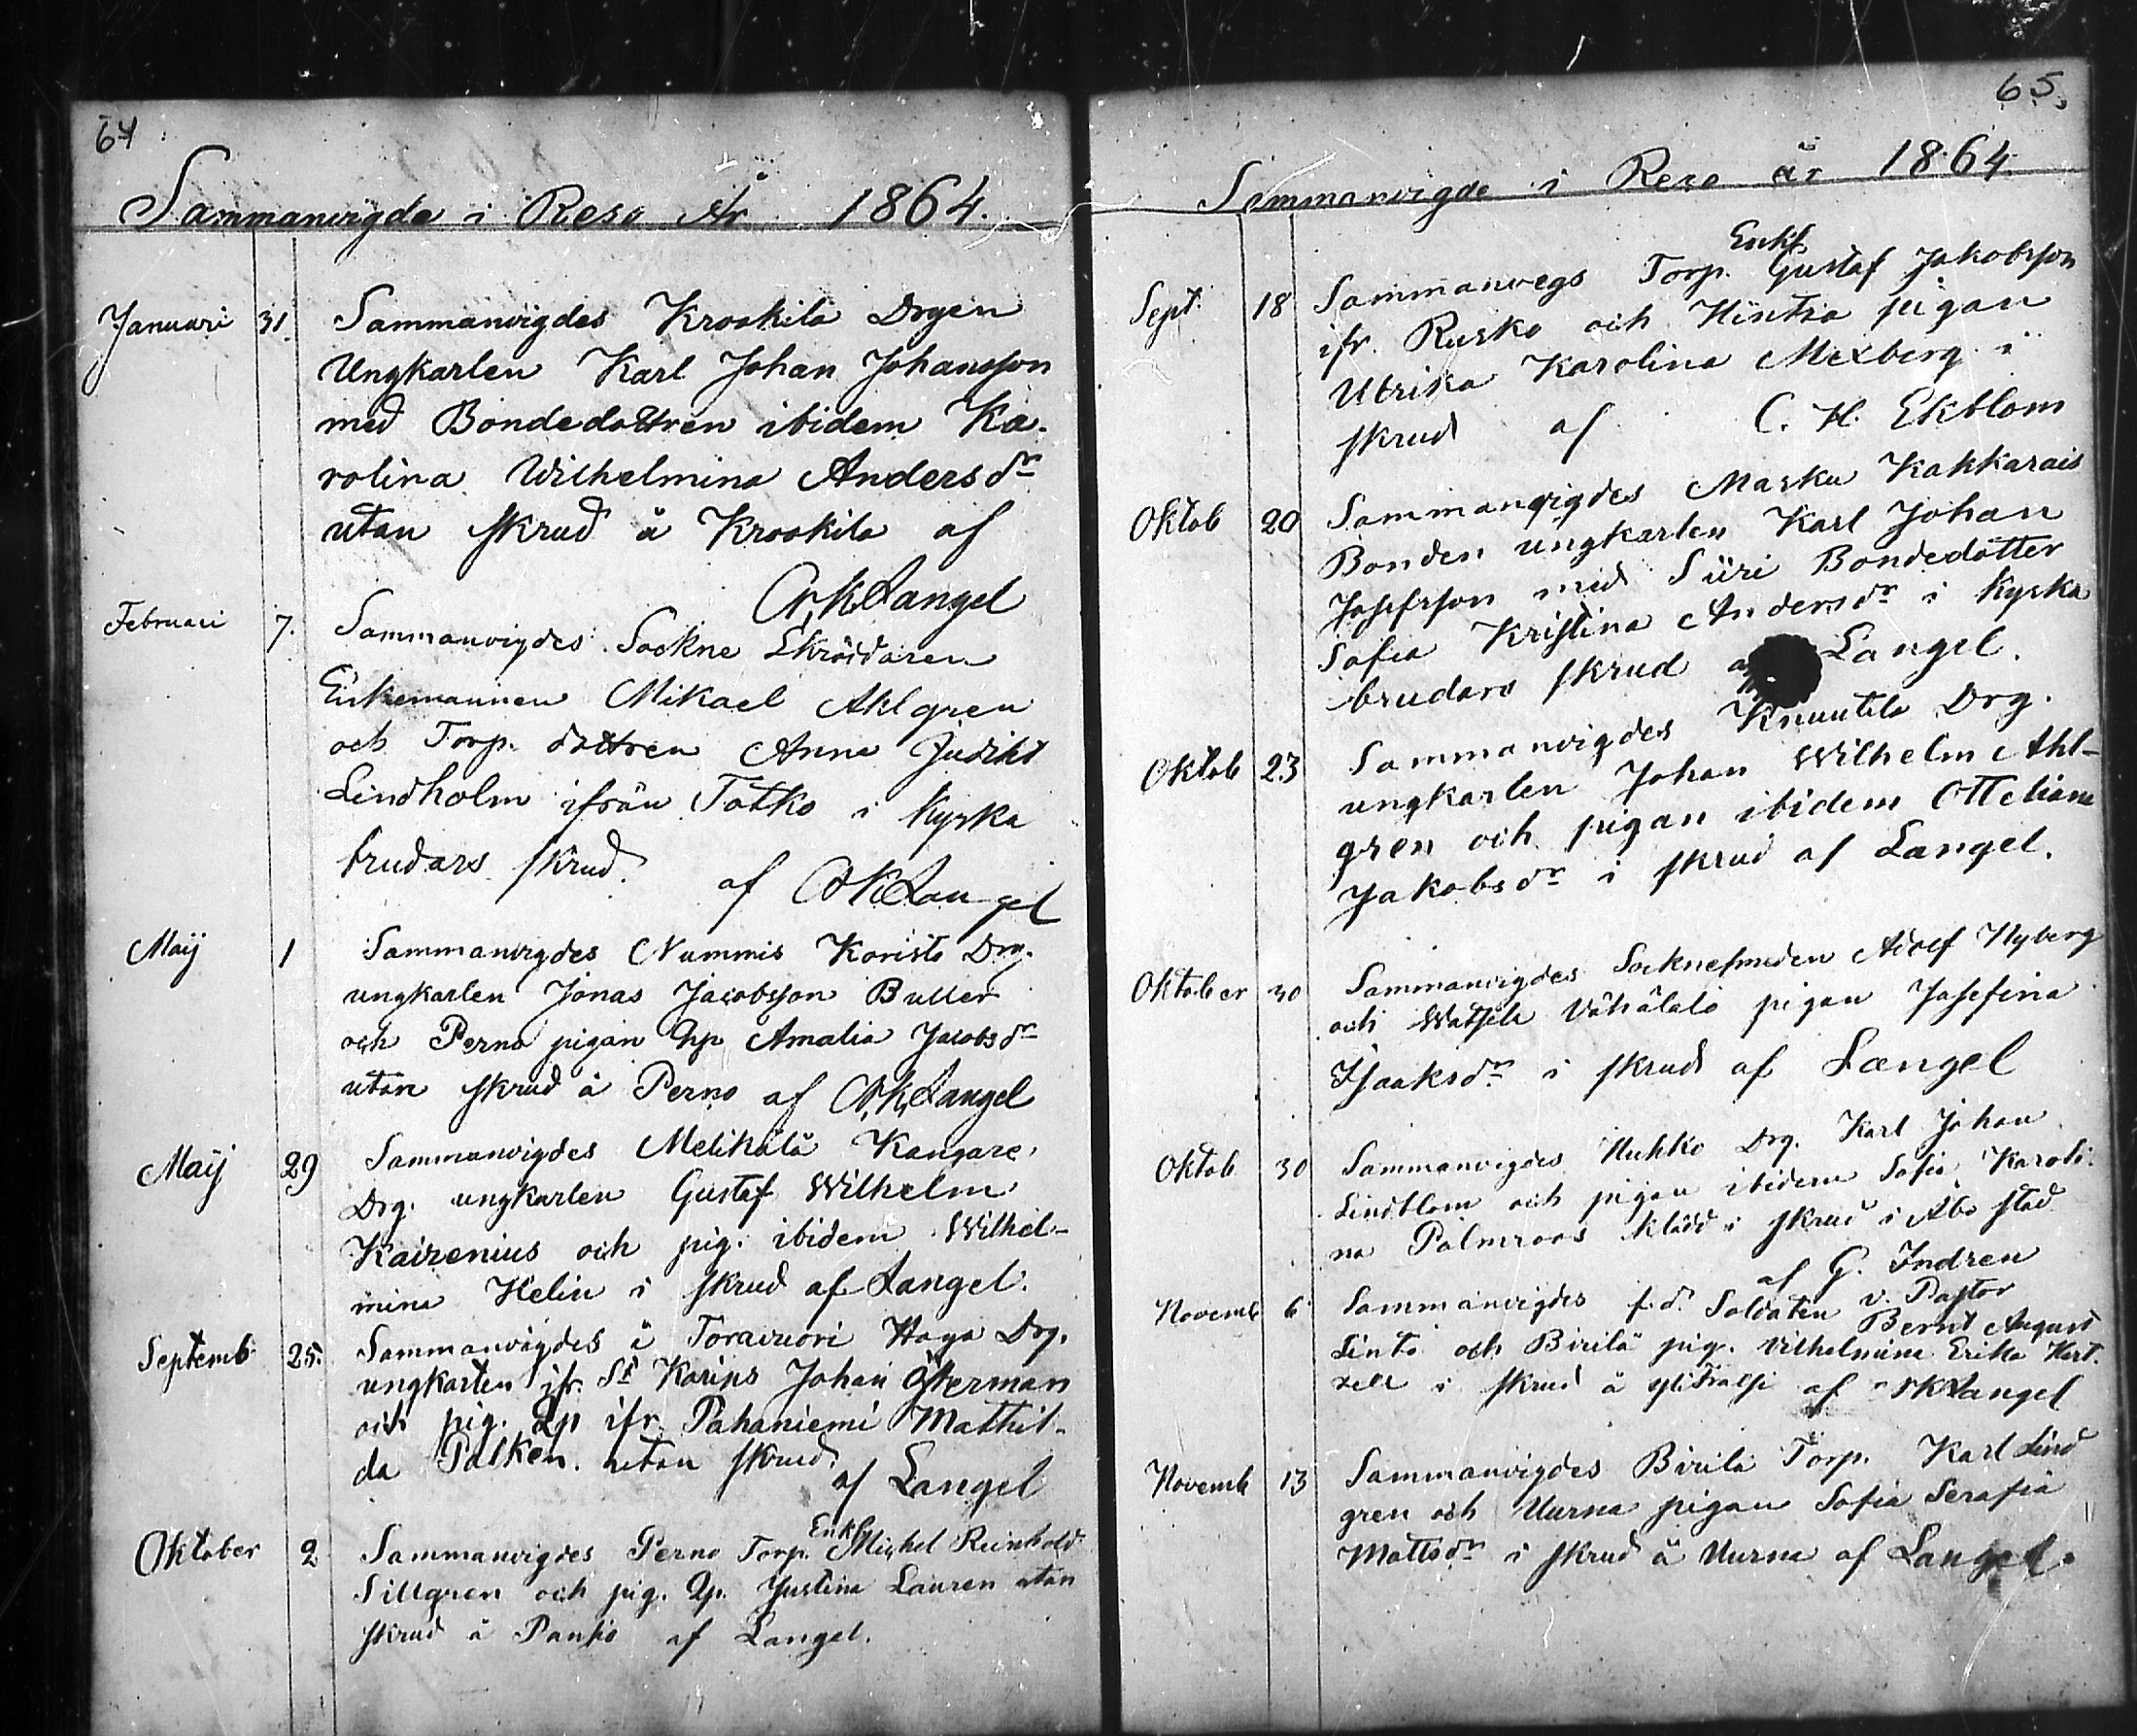 64
Sammanvigde i Reso År 1864.
Januari 31. Sammanvigdes Krookila Drgen
Ungkarlen Karl Johan Johansson
med Bondedottren ibidem Ka-
rolina Wilhelmina Andersdr
utan skrud å Krookila af
Langel
Februari 7. Sammanvigdes Sockne Skräddaren
Enkemannen Mikael Ahlgren
och Torp. dottren Anna Judiht
Lindholm ifrån Totko i kyrka
brudars skrud. af Langel
Maij 1 Sammanvigdes Nummis Koristo Drg.
ungkarlen Jonas Jacobsson Buller
och Perno pigan Qp Amalia Jacobsdr
utan skrud å Perno af Langel
Maij 29 Sammanvigdes Melikälä Kangare,
Drg. ungkarlen Gustaf Wilhelm
Kairenius och pig. ibidem Wilhel-
mina Helin i skrud af Langel.
Septemb. 25. Sammanvigdes å Toravuori Haga Drg.
ungkarlen ifr. St Karins Johan Österman
och pig. Qp ifr. Pahaniemi Mathil-
da Palken. utan skrud.
af Langel
Oktober 2 Sammanvigdes Perno Torp. Enkl. Michel Reinhold
Sillgren och pig. Qp. Justina Lauren utan
skrud å Pansio af Langel.
65.
Sammanvigde i Reso år 1864.
Sept. 18 Sammanvegs Torp. Enkl. Gustaf Jakobsson
ifr. Rusko och Hintsa pigan
Ulrika Karolina Mexberg i
skrud af C. H. Ekblom
Oktob 20 Sammanvigdes Masku Kakkarais
Bonden ungkarlen Karl Johan
Josefsson med Siiri Bondedotter
Sofia Kristina Andersdr i kyrka
brudars skrud Langel.
Oktob 23 Sammanvigdes Knuutila Drg.
ungkarlen Johan Wilhelm Ahl-
gren och pigan ibidem Otteliana
Jakobsdr i skrud af Langel.
Oktober 30 Sammanvigdes Socknesmeden Adolf Nyberg
och Watsela Vähätalo pigan Josefina
Isaaksdr i skrud af Langel
Oktob 30 Sammanvigdes Huhko Drg. Karl Johan
Lindblom och pigan ibidem Sofia Karoli-
na Palmroos klädd i skrud i Åbo stad
af G. Indren
v. Pastor
Novemb 6 Sammanvigdes f.d. Soldaten Bernt August
Linto och Birilä pig. Vilhelmina Erika Hert-
zell i skrud å af Langel
Novemb 13 Sammanvigdes Birilä Torp. Karl Lind
gren och Nurna pigan Sofia Serafia
Mattsdr i skrud å Nurna af Langel.